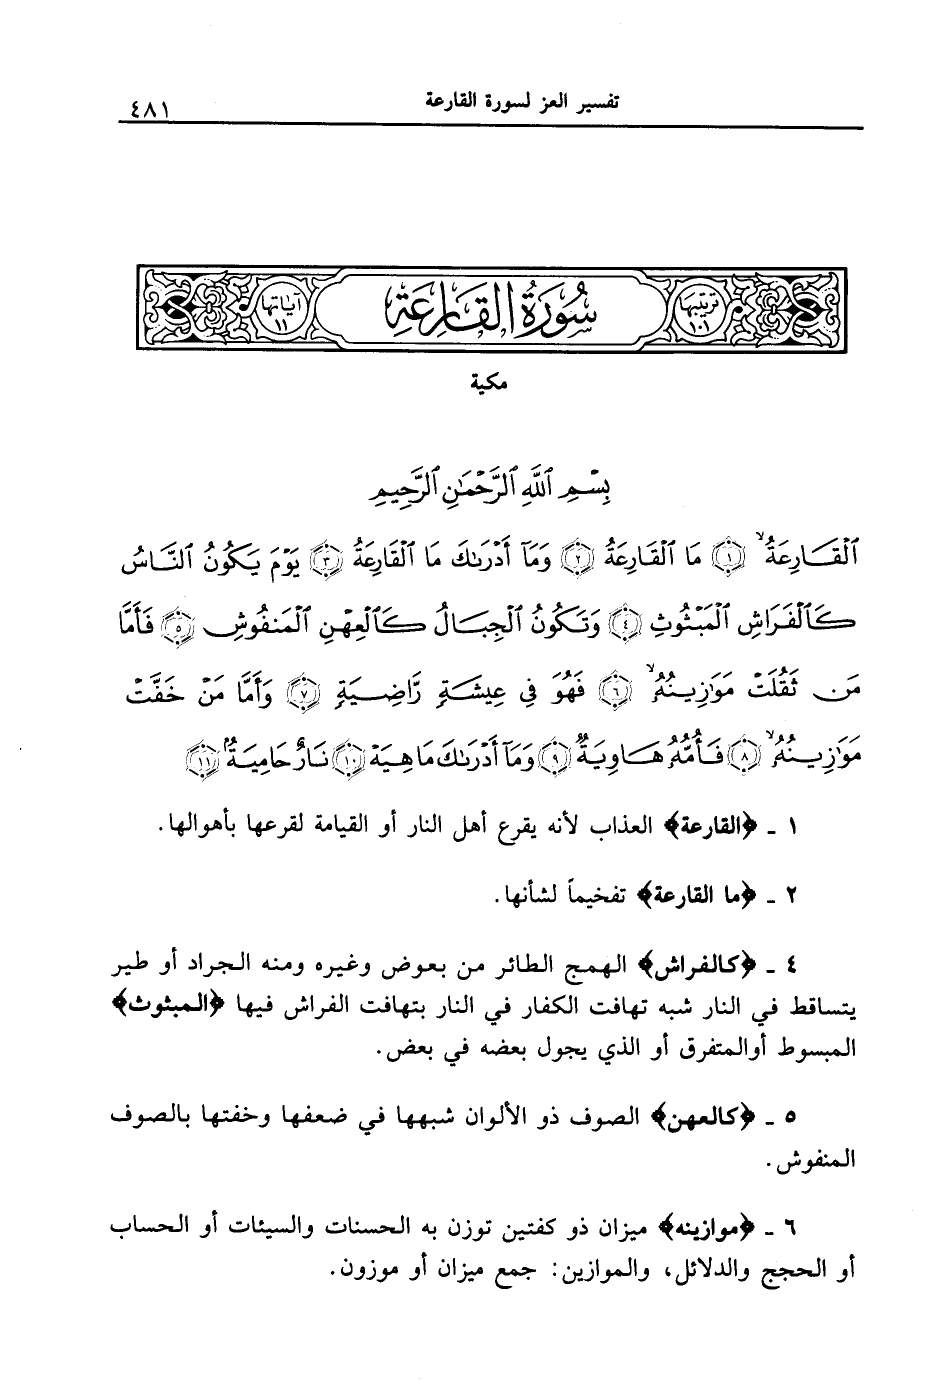 تفسير العز لسورة القارعة
٤٨١
ترتيبها ١٠١
سُورَةُ القَارِعَةِ
آياتها ١١
مكية
بِسْمِ ٱللَّهِ ٱلرَّحْمَٰنِ ٱلرَّحِيمِ
ٱلْقَارِعَةُ ۙ ﴿١﴾ مَا ٱلْقَارِعَةُ ﴿٢﴾ وَمَآ أَدْرَىٰكَ مَا ٱلْقَارِعَةُ ﴿٣﴾ يَوْمَ يَكُونُ ٱلنَّاسُ
كَٱلْفَرَاشِ ٱلْمَبْثُوثِ ﴿٤﴾ وَتَكُونُ ٱلْجِبَالُ كَٱلْعِهْنِ ٱلْمَنفُوشِ ﴿٥﴾ فَأَمَّا
مَن ثَقُلَتْ مَوَٰزِينُهُۥ ۙ ﴿٦﴾ فَهُوَ فِى عِيشَةٍ رَّاضِيَةٍ ﴿٧﴾ وَأَمَّا مَنْ خَفَّتْ
مَوَٰزِينُهُۥ ۙ ﴿٨﴾ فَأُمُّهُۥ هَاوِيَةٌ ﴿٩﴾ وَمَآ أَدْرَىٰكَ مَا هِيَهْ ﴿١٠﴾ نَارٌ حَامِيَةٌۢ ﴿١١﴾
١ ـ ﴿القارعة﴾ العذاب لأنه يقرع أهل النار أو القيامة لقرعها بأهوالها.
٢ ـ ﴿ما القارعة﴾ تفخيماً لشأنها.
٤ ـ ﴿كالفراش﴾ الهمج الطائر من بعوض وغيره ومنه الجراد أو طير
يتساقط في النار شبه تهافت الكفار في النار بتهافت الفراش فيها ﴿المبثوث﴾
المبسوط أوالمتفرق أو الذي يجول بعضه في بعض.
٥ ـ ﴿كالعهن﴾ الصوف ذو الألوان شبهها في ضعفها وخفتها بالصوف
المنفوش.
٦ ـ ﴿موازينه﴾ ميزان ذو كفتين توزن به الحسنات والسيئات أو الحساب
أو الحجج والدلائل، والموازين: جمع ميزان أو موزون.